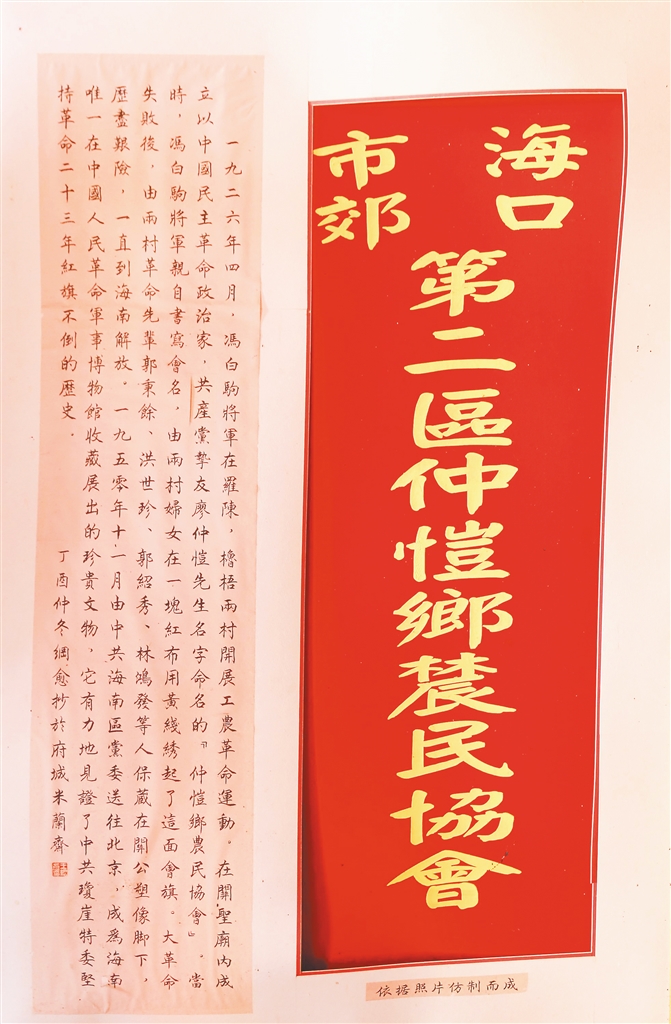 海口
市郊
第二區仲愷鄉農民協會
依据照片仿制而成
一九二六年四月，馮白駒將軍在羅陳，櫓梧兩村開展工農革命運動。在關聖廟內成
立以中國民主革命政治家，共產黨摯友廖仲愷先生名字命名的『仲愷鄉農民協會』。當
時，馮白駒將軍親自書寫會名，由兩村婦女在一塊紅布用黃綫綉起了這面會旗。大革命
失敗後，由兩村革命先輩郭束餘、洪世珍、郭紹秀、林鴻發等人保藏在關公塑像脚下，
歷盡艱險，一直到海南解放。一九五零年十一月由中共海南區黨委送往北京，成爲海南
唯一在中國人民革命軍事博物館收藏展出的珍貴文物，它有力地見證了中共瓊崖特委堅
持革命二十三年紅旗不倒的歷史．
丁酉仲冬綱愈抄於府城米蘭齋